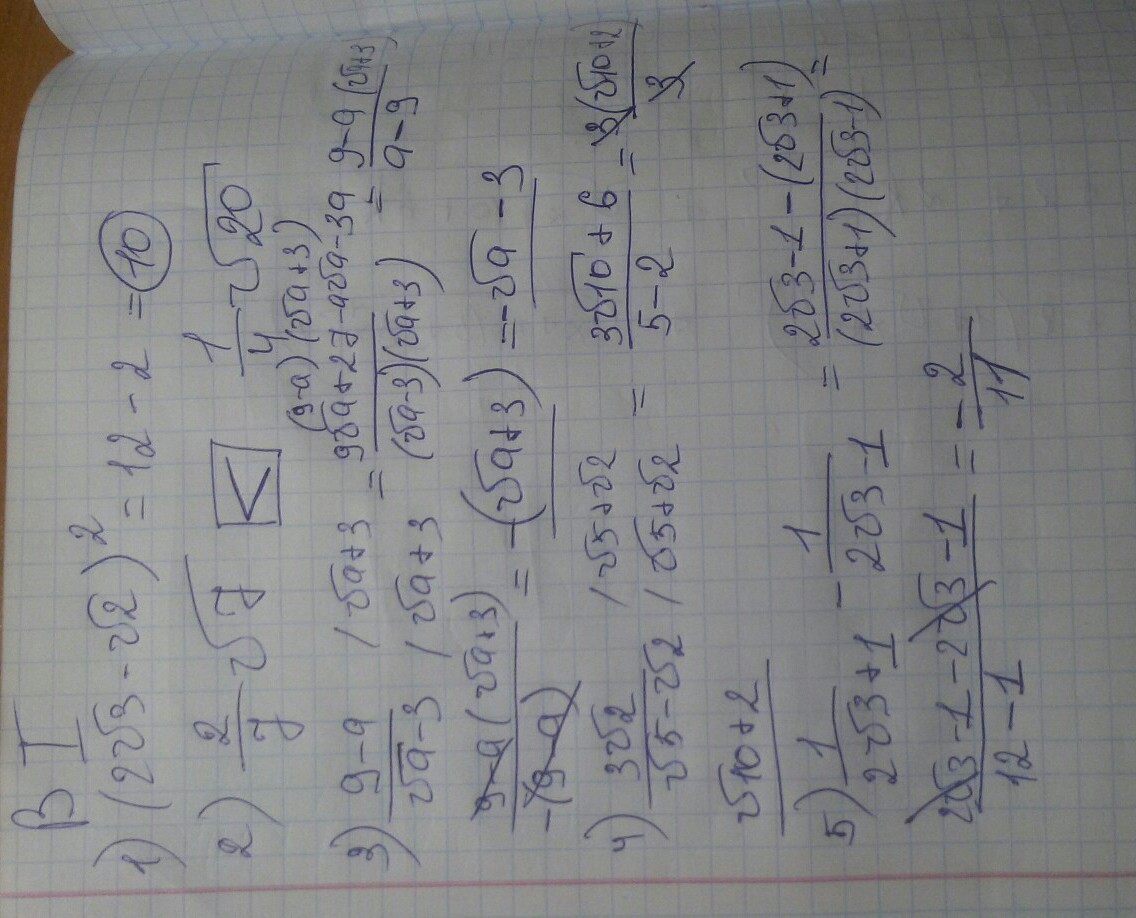 В I
1) (2√3-√2)² = 12-2 = 10
2) 2/7 √7 < 1/4 √20
(9-a)(√a+3)
3) 9-a/√a-3 /√a+3 /√a+3 = 9√a+27-a√a-3a/(√a-3)(√a+3) = 9-a(√a+3)/a-9
9-a(√a+3)/-(9-a) = -(√a+3) = -√a-3
4) 3√2/√5-√2 /√5+√2 /√5+√2 = 3√10+6/5-2 = 3(√10+2)/3
√10+2
5) 1/2√3+1 - 1/2√3-1 = 2√3-1-(2√3+1)/(2√3+1)(2√3-1) =
2√3-1-2√3-1/12-1 = -2/11